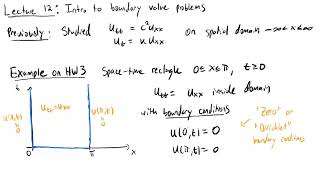 Lecture 12: Intro to boundary value problems
Previously: Studied u_tt = c²u_xx on spatial domain -∞<x<∞
u_t = κ u_xx
Example on HW3 Space-time rectangle 0≤x≤π, t≥0
t
u_tt = u_xx inside domain
with boundary conditions
u(0,t) = 0
u(π,t) = 0
"Zero" or
"Dirichlet"
boundary conditions
u(0,t)
=
0
u_tt = u_xx
u(π,t)
=
0
0
π
x